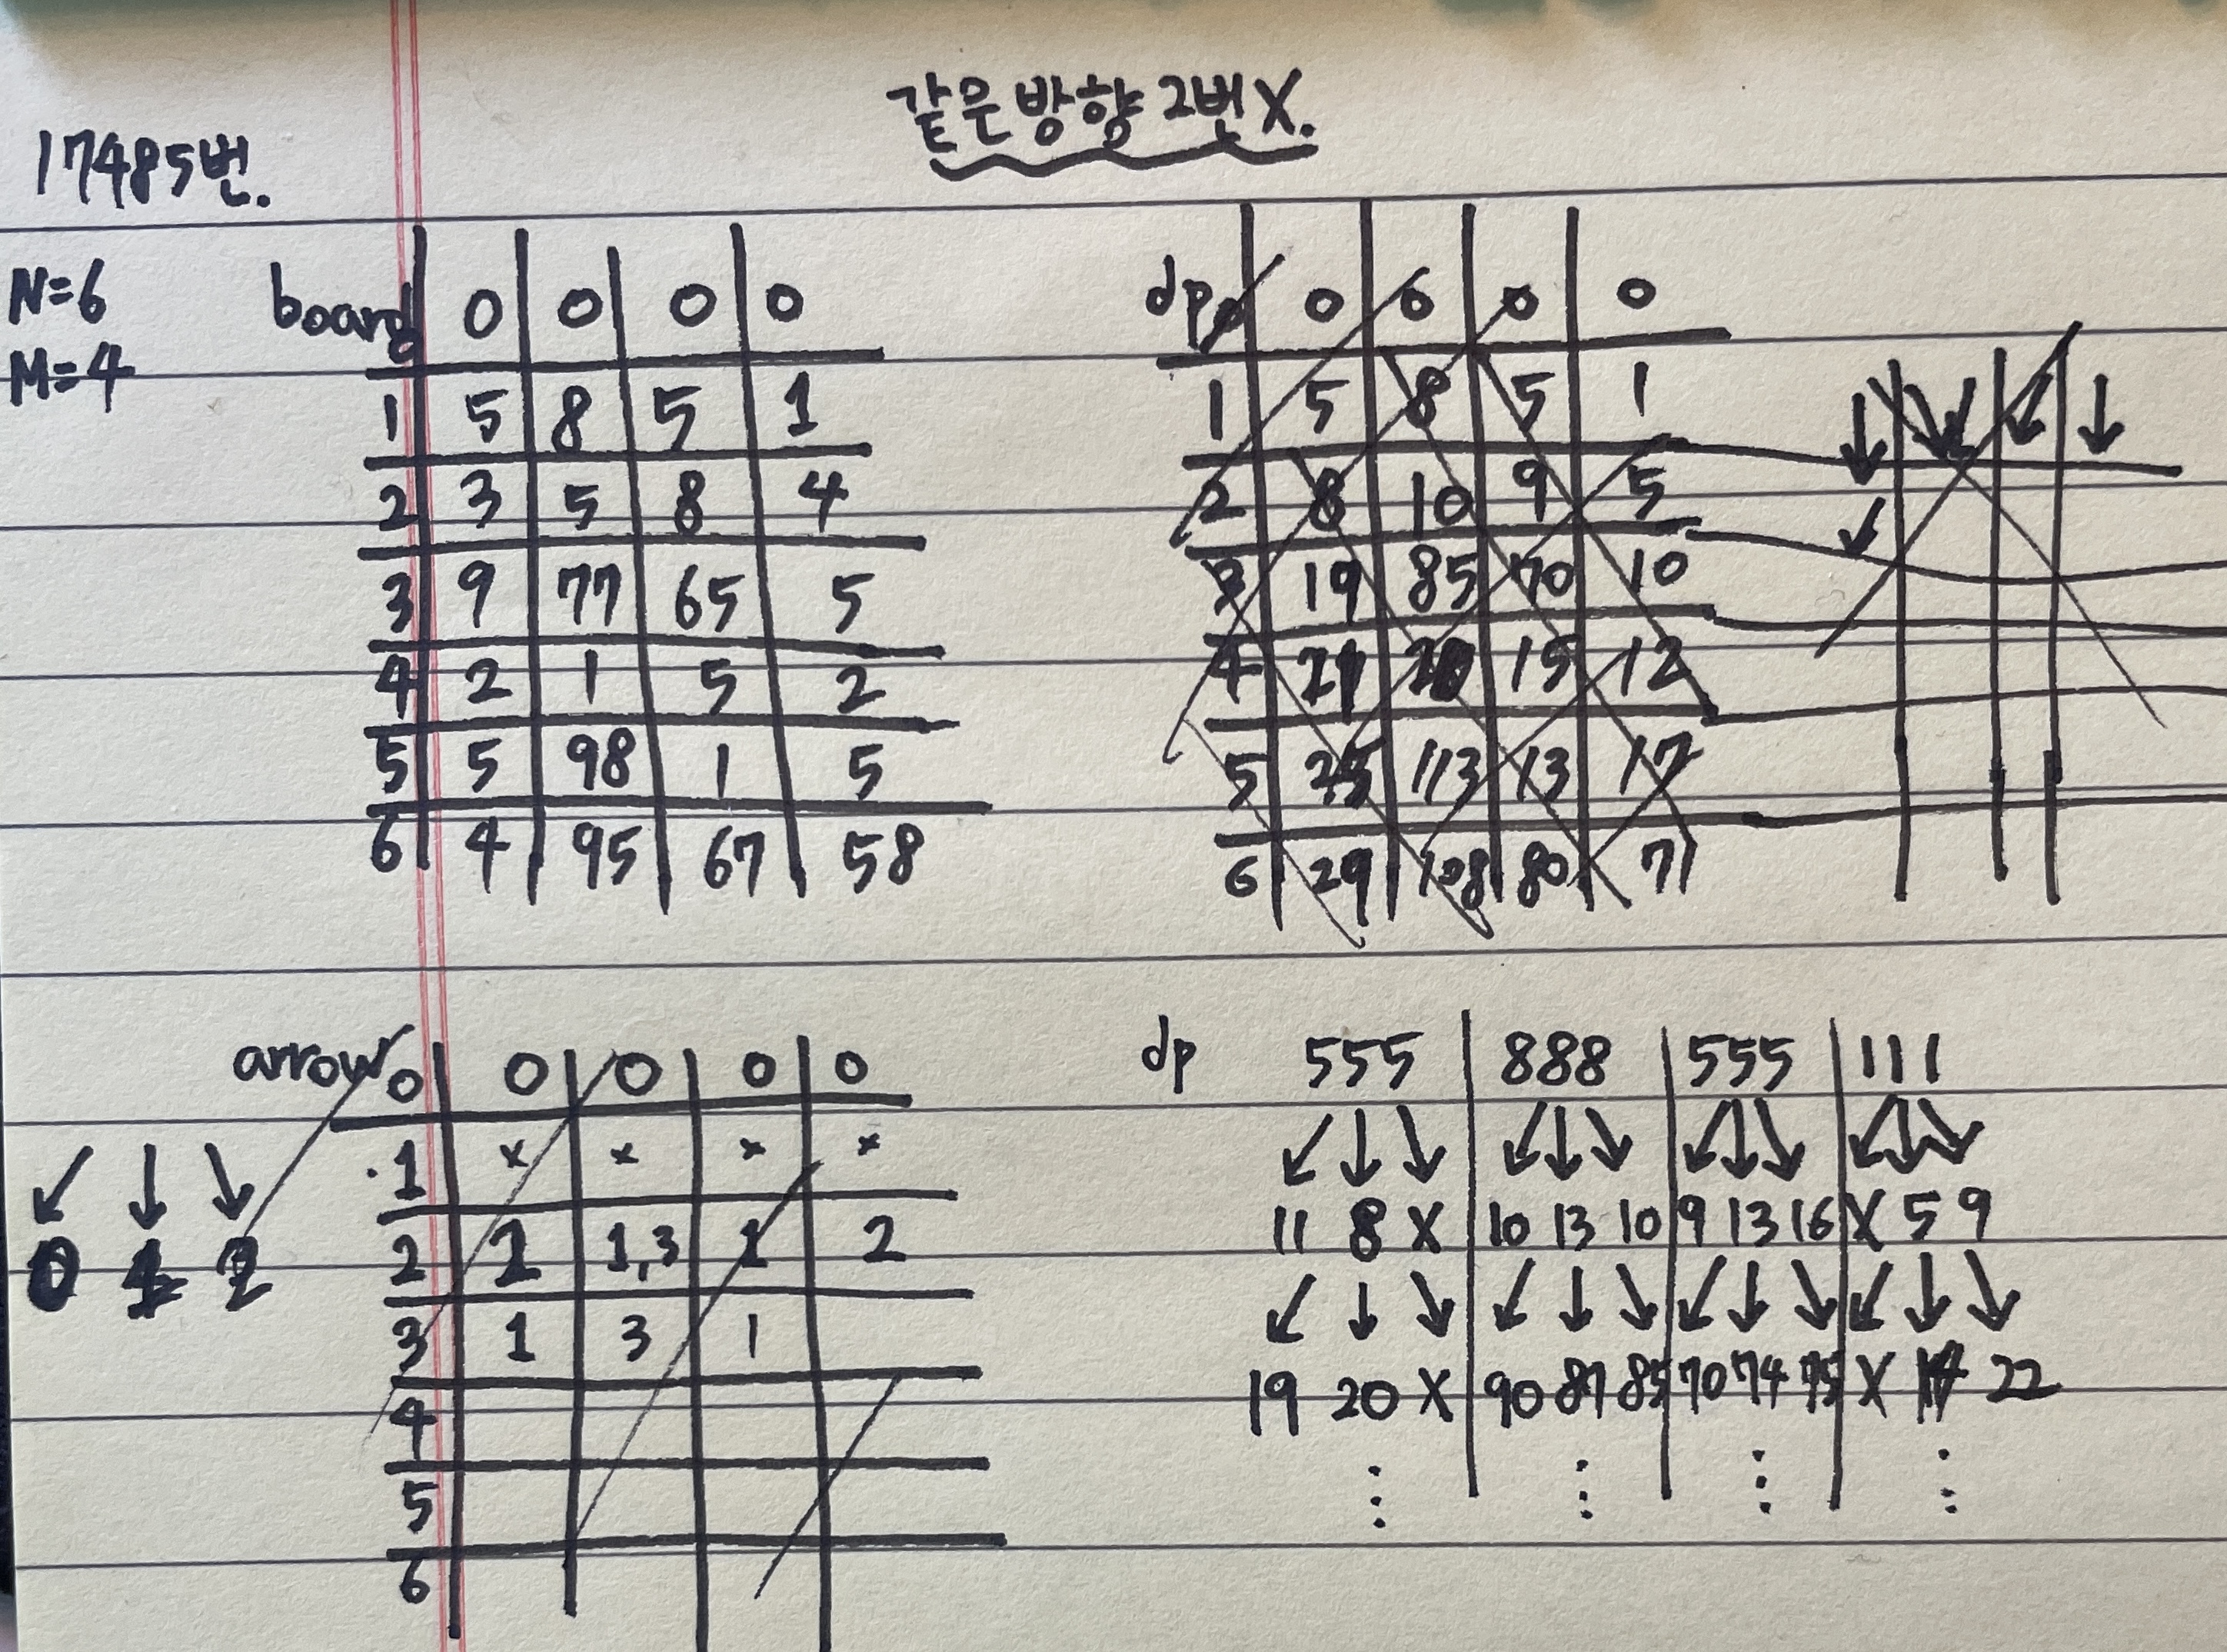 같은 방향 2번 X.
17485번.
N=6
M=4
board 0 0 0 0
1 5 8 5 1
2 3 5 8 4
3 9 77 65 5
4 2 1 5 2
5 5 98 1 5
6 4 95 67 58
dp 0 0 0 0
1 5 8 5 1
2 8 10 9 5
3 19 85 70 10
4 21 15 12
5 113 13 17
6 29 108 80 71
↓ ↙ ↓
↙
arrow 0 0 0 0 0
1 × × × ×
2 1 1,3 1 2
3 1 3 1
4
5
6
↙ ↓ ↘
0 1 2
dp 555 888 555 111
↙↓↘ ↙↓↘ ↙↓↘ ↙↓↘
11 8 X 10 13 10 9 13 16 X 5 9
↙↓↘ ↙↓↘ ↙↓↘ ↙↓↘
19 20 X 90 87 85 70 74 75 X 22
⋮ ⋮ ⋮ ⋮